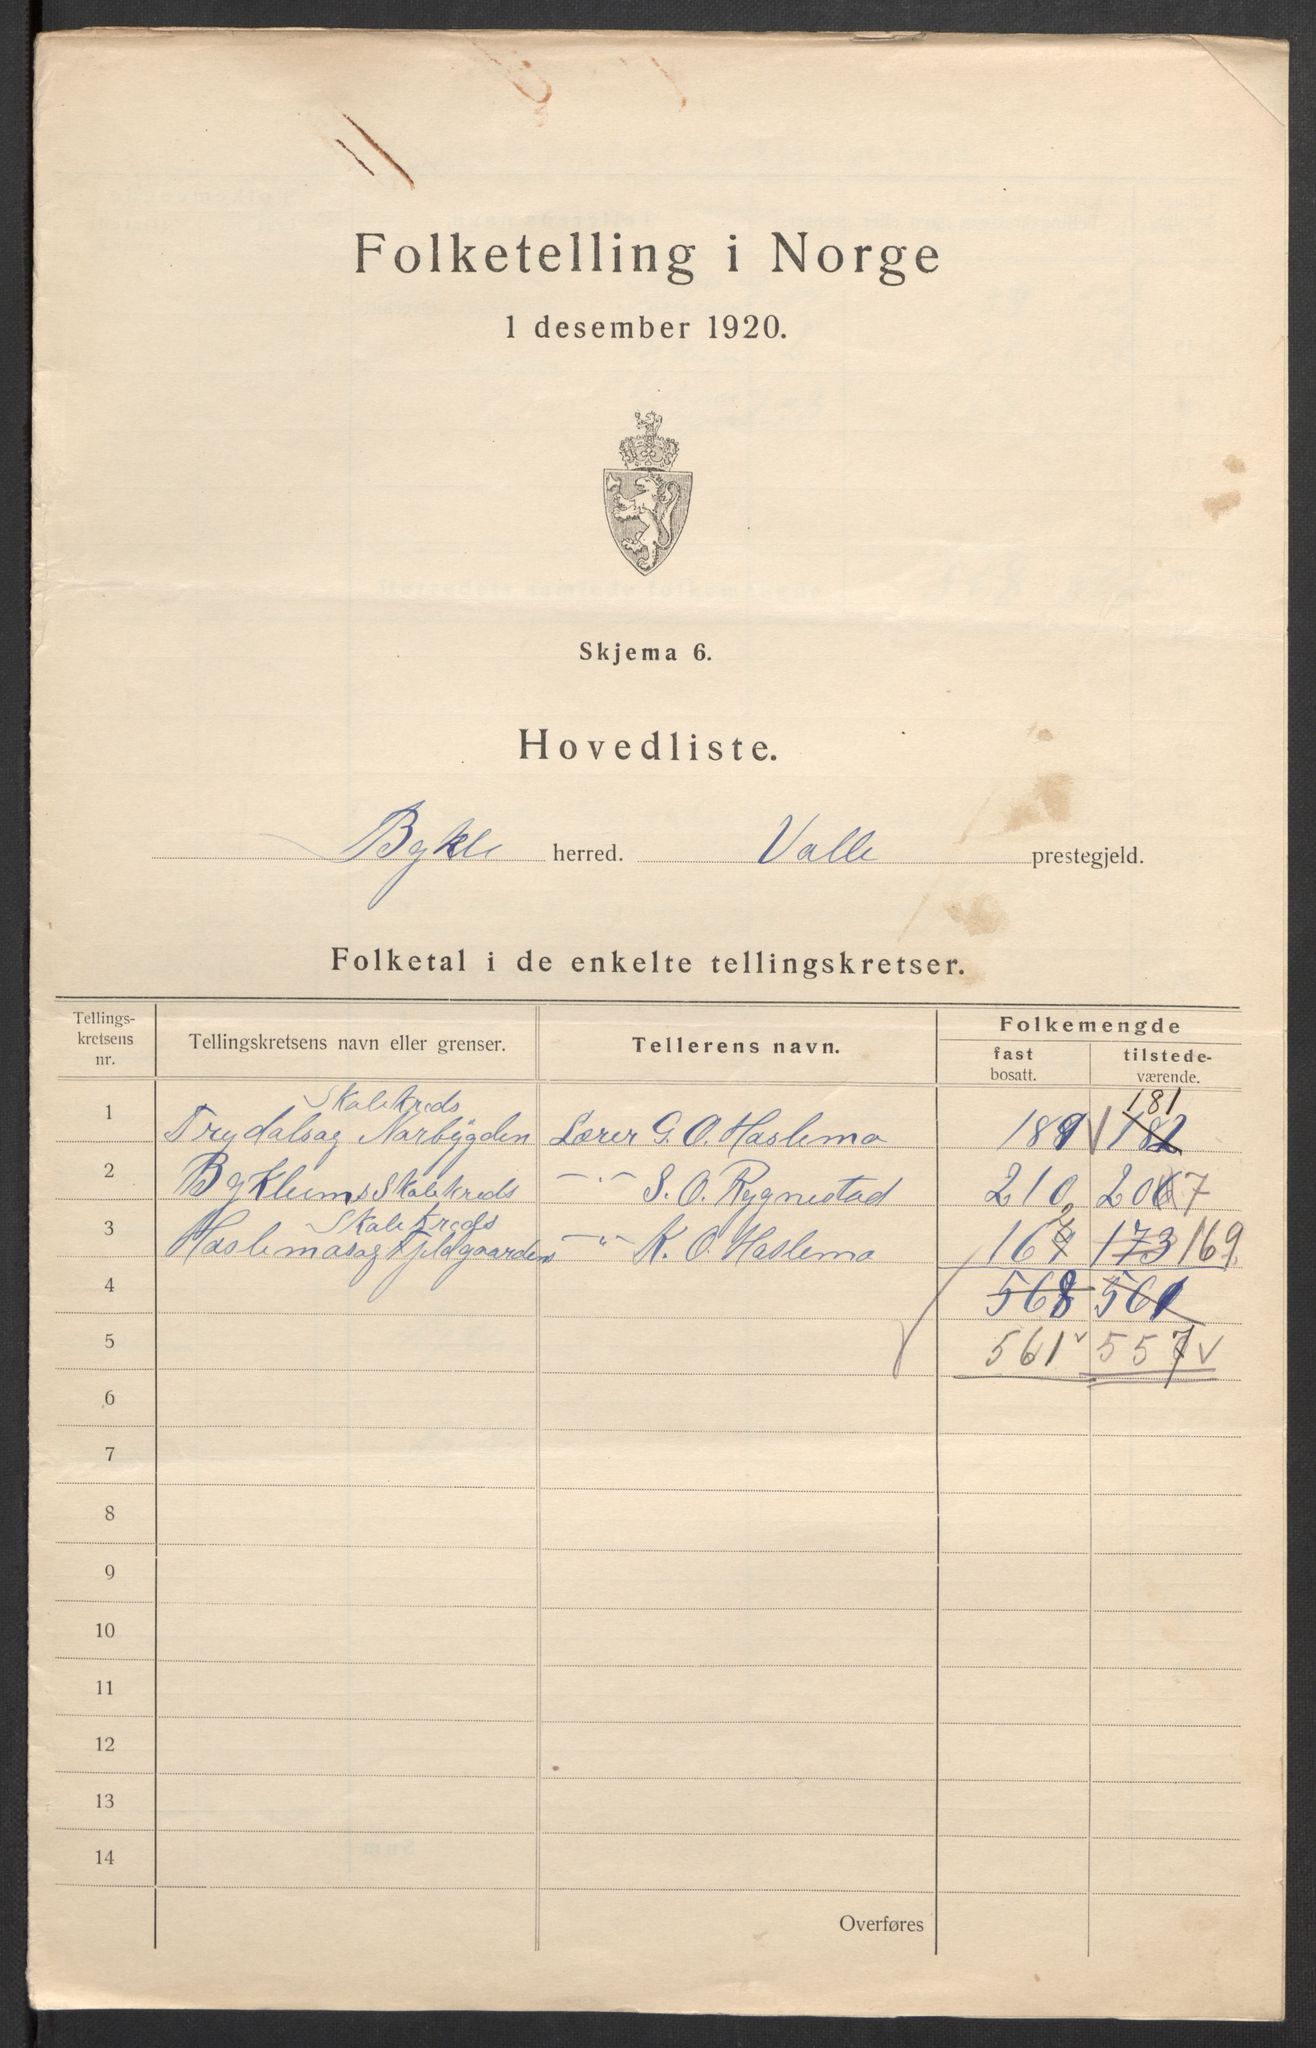 Folketelling i Norge
1 desember 1920.
Skjema 6.
Hovedliste.
Bykle herred. Valle prestegjeld.
Folketal i de enkelte tellingskretser.
Tellings-
kretsens
nr.
Tellingskretsens navn eller grenser.
Tellerens navn.
Folkemengde
fast
bosatt.
tilstede-
værende.
Skolekreds 181
1 Trydalsog Norbygden Lærer G. O. Haslemo 189 182
2 Byklums Skolekreds — " — S. O. Rygnestad 210 2067
Skolekreds
3 Haslemosog Fjeldgaardens — " — K. O. Haslemo 173 169
4 568 561
5 561 557
6
7
8
9
10
11
12
13
14
Overføres